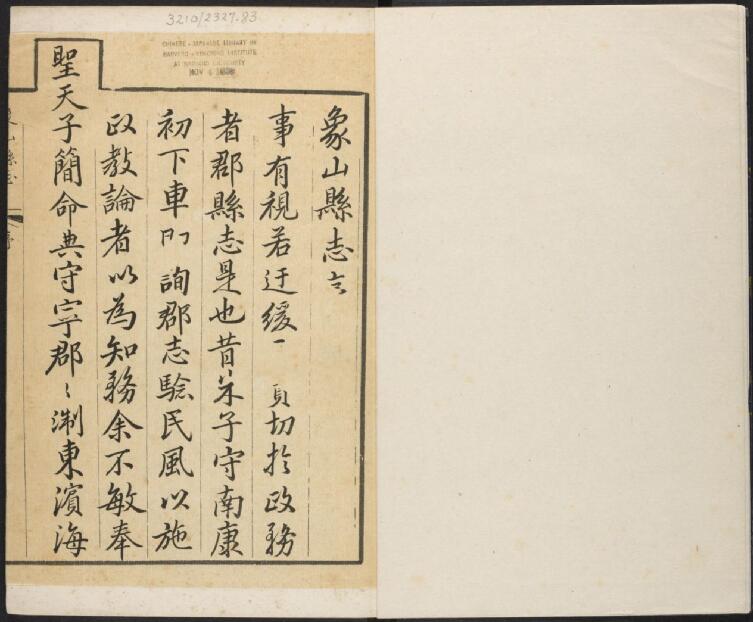 3210/2327.83
CHINESE - JAPANESE LIBRARY OF
HARVARD - YENCHING INSTITUTE
AT HARVARD UNIVERSITY
NOV
象山縣志
事有視若迂緩 切於政務
者郡縣志是也昔朱子守南康
初下車 詢郡志驗民風以施
政教論者以為知務余不敏奉
聖天子簡命典守寧郡〻淛東濱海
象山縣志
序